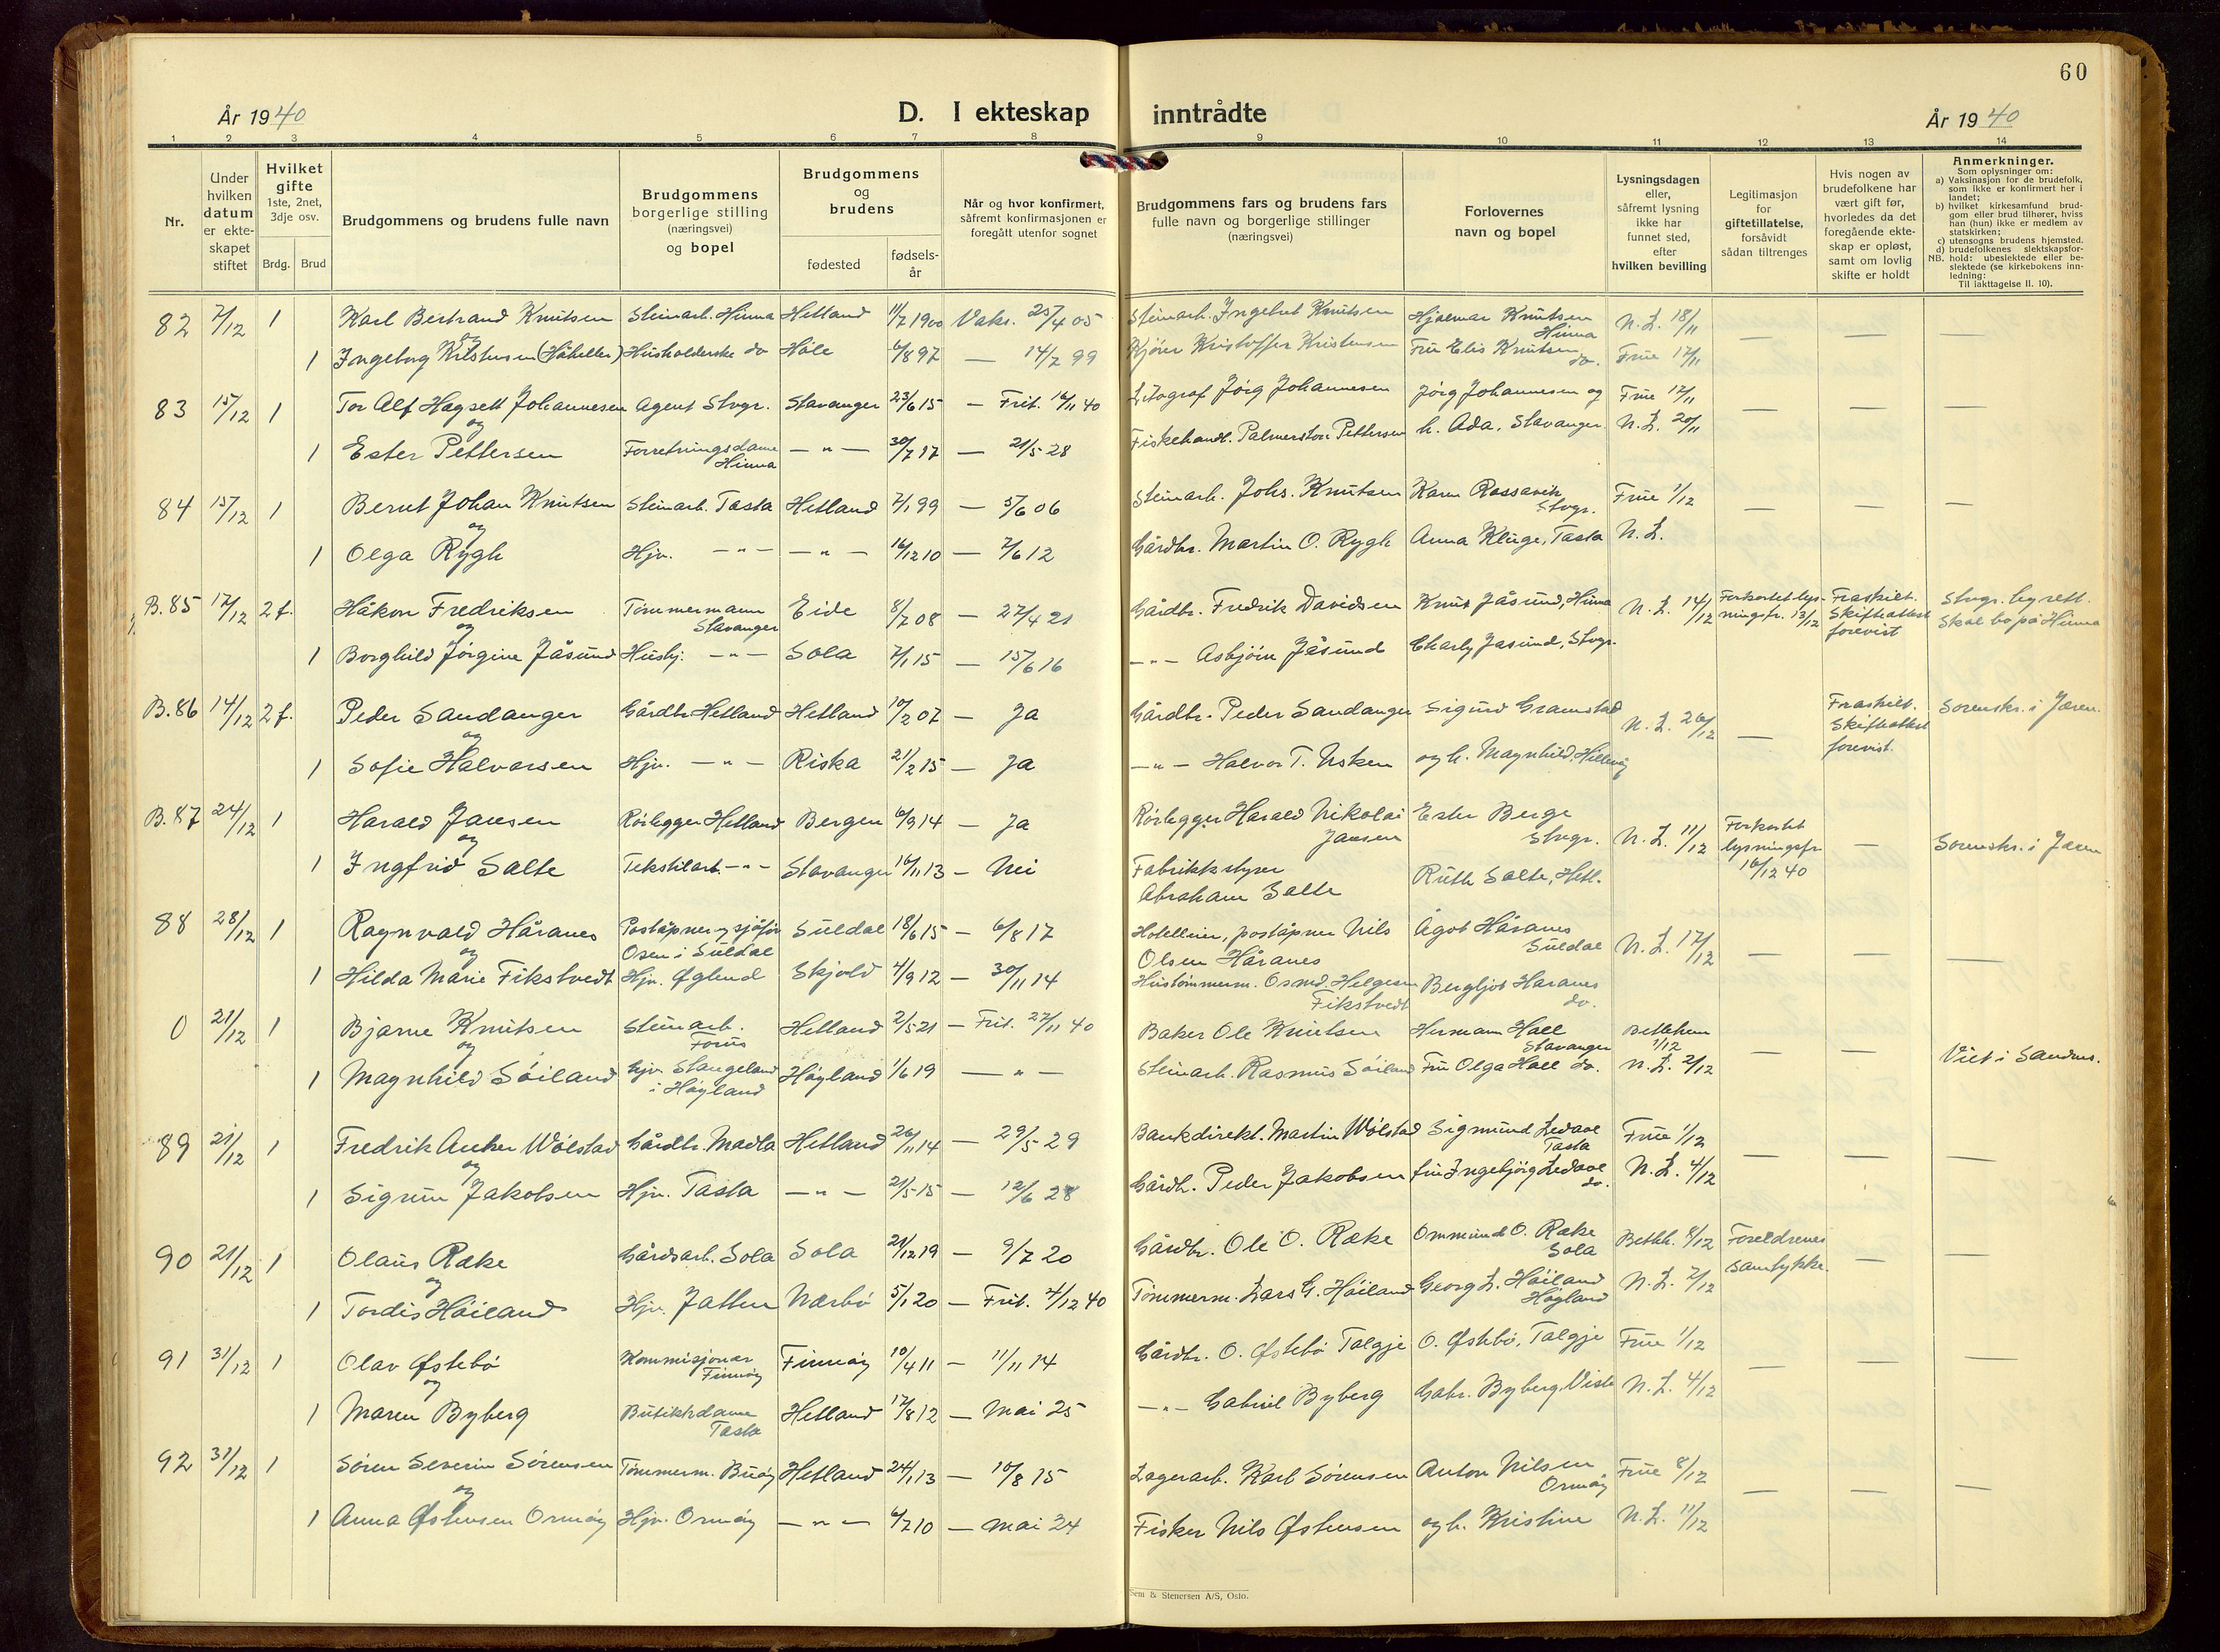 60
År 1940
D. I ekteskap inntrådte
År 1940
1 2 3 4 5 6 7 8 9 10 11 12 13 14
Nr.
Under hvilken datum er ekteskapet stiftet
Hvilket gifte 1ste, 2net, 3dje osv.
Brdg. Brud
Brudgommens og brudens fulle navn
Brudgommens borgerlige stilling (næringsvei) og bopel
Brudgommens og brudens
fødested
fødselsår
Når og hvor konfirmert, såfremt konfirmasjonen er foregått utenfor sognet
Brudgommens fars og brudens fars fulle navn og borgerlige stillinger (næringsvei)
Forlovernes navn og bopel
Lysningsdagen eller, såfremt lysning ikke har funnet sted, efter hvilken bevilling
Legitimasjon for giftetillatelse, forsåvidt sådan tiltrenges
Hvis nogen av brudefolkene har vært gift før, hvorledes da det foregående ekteskap er opløst, samt om lovlig skifte er holdt
Anmerkninger.
Som oplysninger om:
a) Vaksinasjon for de brudefolk, som ikke er konfirmert her i landet;
b) hvilket kirkesamfund brudgom eller brud tilhører, hviss han (hun) ikke er medlem av statskirken;
c) utensogns brudens hjemsted.
d) brudefolkenes slektskapsforhold: ubeslektede eller beslektede (se kirkebokens innledning:
NB. Til iakttagelse II. 10).
82 7/12 1 Karl Bertrand Knutsen Steinarb. Hinna Hetland 11/7 1900 Vaks. 25/4 05 Steinarb. Ingebret Knutsen Hjalmar Knutsen Hinna N.L. 18/11 — — —
og
1 Ingeborg Kristensen (Håheller) Husholderske do Høle 6/8 97 — 14/7 99 Kjører Kristoffer Kristensen Fru Elis Knutsen do. Frue 17/11
83 15/12 1 Tor Alf Hagsett Johannesen Agent Stvgr. Stavanger 23/6 15 — Frit. 16/11 40 Litograf Jørg Johannesen Jørg Johannesen og Frue 17/11 — — —
og
1 Ester Pettersen Forretningsdame Hinna — " — 30/7 17 — 21/5 28 Fiskehandl. Palmerston Pettersen h. Ada, Stavanger N.L. 20/11
84 15/12 1 Bernt Johan Knutsen Steinarb. Tasta Hetland 7/1 99 — 5/6 06 Steinarb. Johs. Knutsen Karen Rossavik Stvgr. Frue 1/12 — — —
og
1 Olga Rygh Hjv. — " — — " — 16/12 10 — 7/6 12 Gårdbr. Martin O. Rygh Anna Kluge, Tasta N.L.
B.85 17/12 2 f. Håkon Fredriksen Tømmermann Stavanger Eide 8/7 08 — 27/4 21 Gårdbr. Fredrik Davidsen Knut Jåsund, Hinna N.L. 14/12 Forkortet lysningsfr. 13/12 Fraskilt. Skifteattest forevist Stvgr. byrett. Skal bo på Hinna
og
1 Borghild Jørgine Jåsund Hushj. — " — Sola 7/1 15 — 15/6 16 — " — Asbjørn Jåsund Charly Jasund, Stvgr.
B.86 14/12 2 f. Peder Sandanger Gårdbr Hetland Hetland 10/2 07 — Ja Gårdbr. Peder Sandanger Sigurd Gramstad N.L. 26/12 — Fraskilt. Skifteattest forevist. Sorenskr. i Jæren.
og
1 Sofie Halvorsen Hjv. — " — Riska 21/2 15 — Ja — " — Halvor T. Usken og h. Magnhild, Hillevåg
B.87 24/12 1 Harald Jansen Rørlegger Hetland Bergen 6/9 14 — Ja Rørlegger Harald Nikolai Jansen Ester Berge Stvgr. N.L. 11/12 Forkortet lysningsfr 16/12 40 — Sorenskr. i Jæren
og
1 Ingfrid Salte Tekstilarb. — " — Stavanger 16/11 13 — Nei Fabrikkstyrer Abraham Salte Ruth Salte, Hetl.
88 28/12 1 Ragnvald Håranes Poståpner og sjåfør Osen i Suldal Suldal 18/6 15 — 6/8 17 Hotelleier, poståpner Nils Olsen Håranes Ågot Håranes Suldal N.L. 17/12 — — —
og
1 Hilda Marie Fikstvedt Hjv. Øglend Skjold 4/9 12 — 30/11 14 Hustømmerm. Osmd. Helgesen Fikstvedt Bergljot Haranes do.
0 21/12 1 Bjarne Knutsen Steinarb. Forus Hetland 2/5 21 — Frit. 27/11 40 Baker Ole Knutsen Herman Hall Stavanger Betlehem 1/12 — — Viet i Sandnes.
og
1 Magnhild Søiland Hjv. Stangeland i Høyland Høyland 1/6 19 — " — Steinarb. Rasmus Søiland Fru Olga Hall do. N.L. 2/12
89 21/12 1 Fredrik Anker Wølstad Gårdbr. Madla Hetland 26/11 14 — 29/5 29 Bankdirekt. Martin Wølstad Sigmund Ledaal Tasta Frue 1/12 — — —
og
1 Sigrun Jakobsen Hjv. Tasta — " — 21/5 15 — 12/6 28 Gårdbr. Peder Jakobsen fru Ingebjørg Ledaal do. N.L. 4/12
90 21/12 1 Olaus Rake Gårdsarb. Sola Sola 21/12 19 — 9/7 20 Gårdbr. Ole O. Rake Ommund O. Rake Sola Bethl. 8/12 Foreldrenes samtykke. — —
og
1 Tordis Høiland Hjv. Jåtten Nærbø 5/1 20 — Frit. 4/12 40 Tømmerm. Lars G. Høiland Georg L. Høiland Høyland N.L. 7/12
91 31/12 1 Olav Østebø Kommisjonær Finnøy Finnøy 10/4 11 — 11/11 14 Gårdbr. O. Østebø Talgje O. Østebø, Talgje Frue 1/12 — — —
og
1 Maren Byberg Butikkdame Tasta Hetland 17/8 12 — Mai 25 — " — Gabriel Byberg Gabr. Byberg, Viste N.L. 4/12
92 31/12 1 Søren Severin Sørensen Tømmerm. Buøy Hetland 24/1 13 — 10/8 15 Lagerarb. Karl Sørensen Anton Nilsen Ormøy Frue 8/12 — — —
og
1 Anna Østensen Ormøy Hjv. Ormøy — " — 6/7 10 — Mai 24 Fisker Nils Østensen og h. Kristine N.L. 11/12
Sem & Stenersen A/S, Oslo.